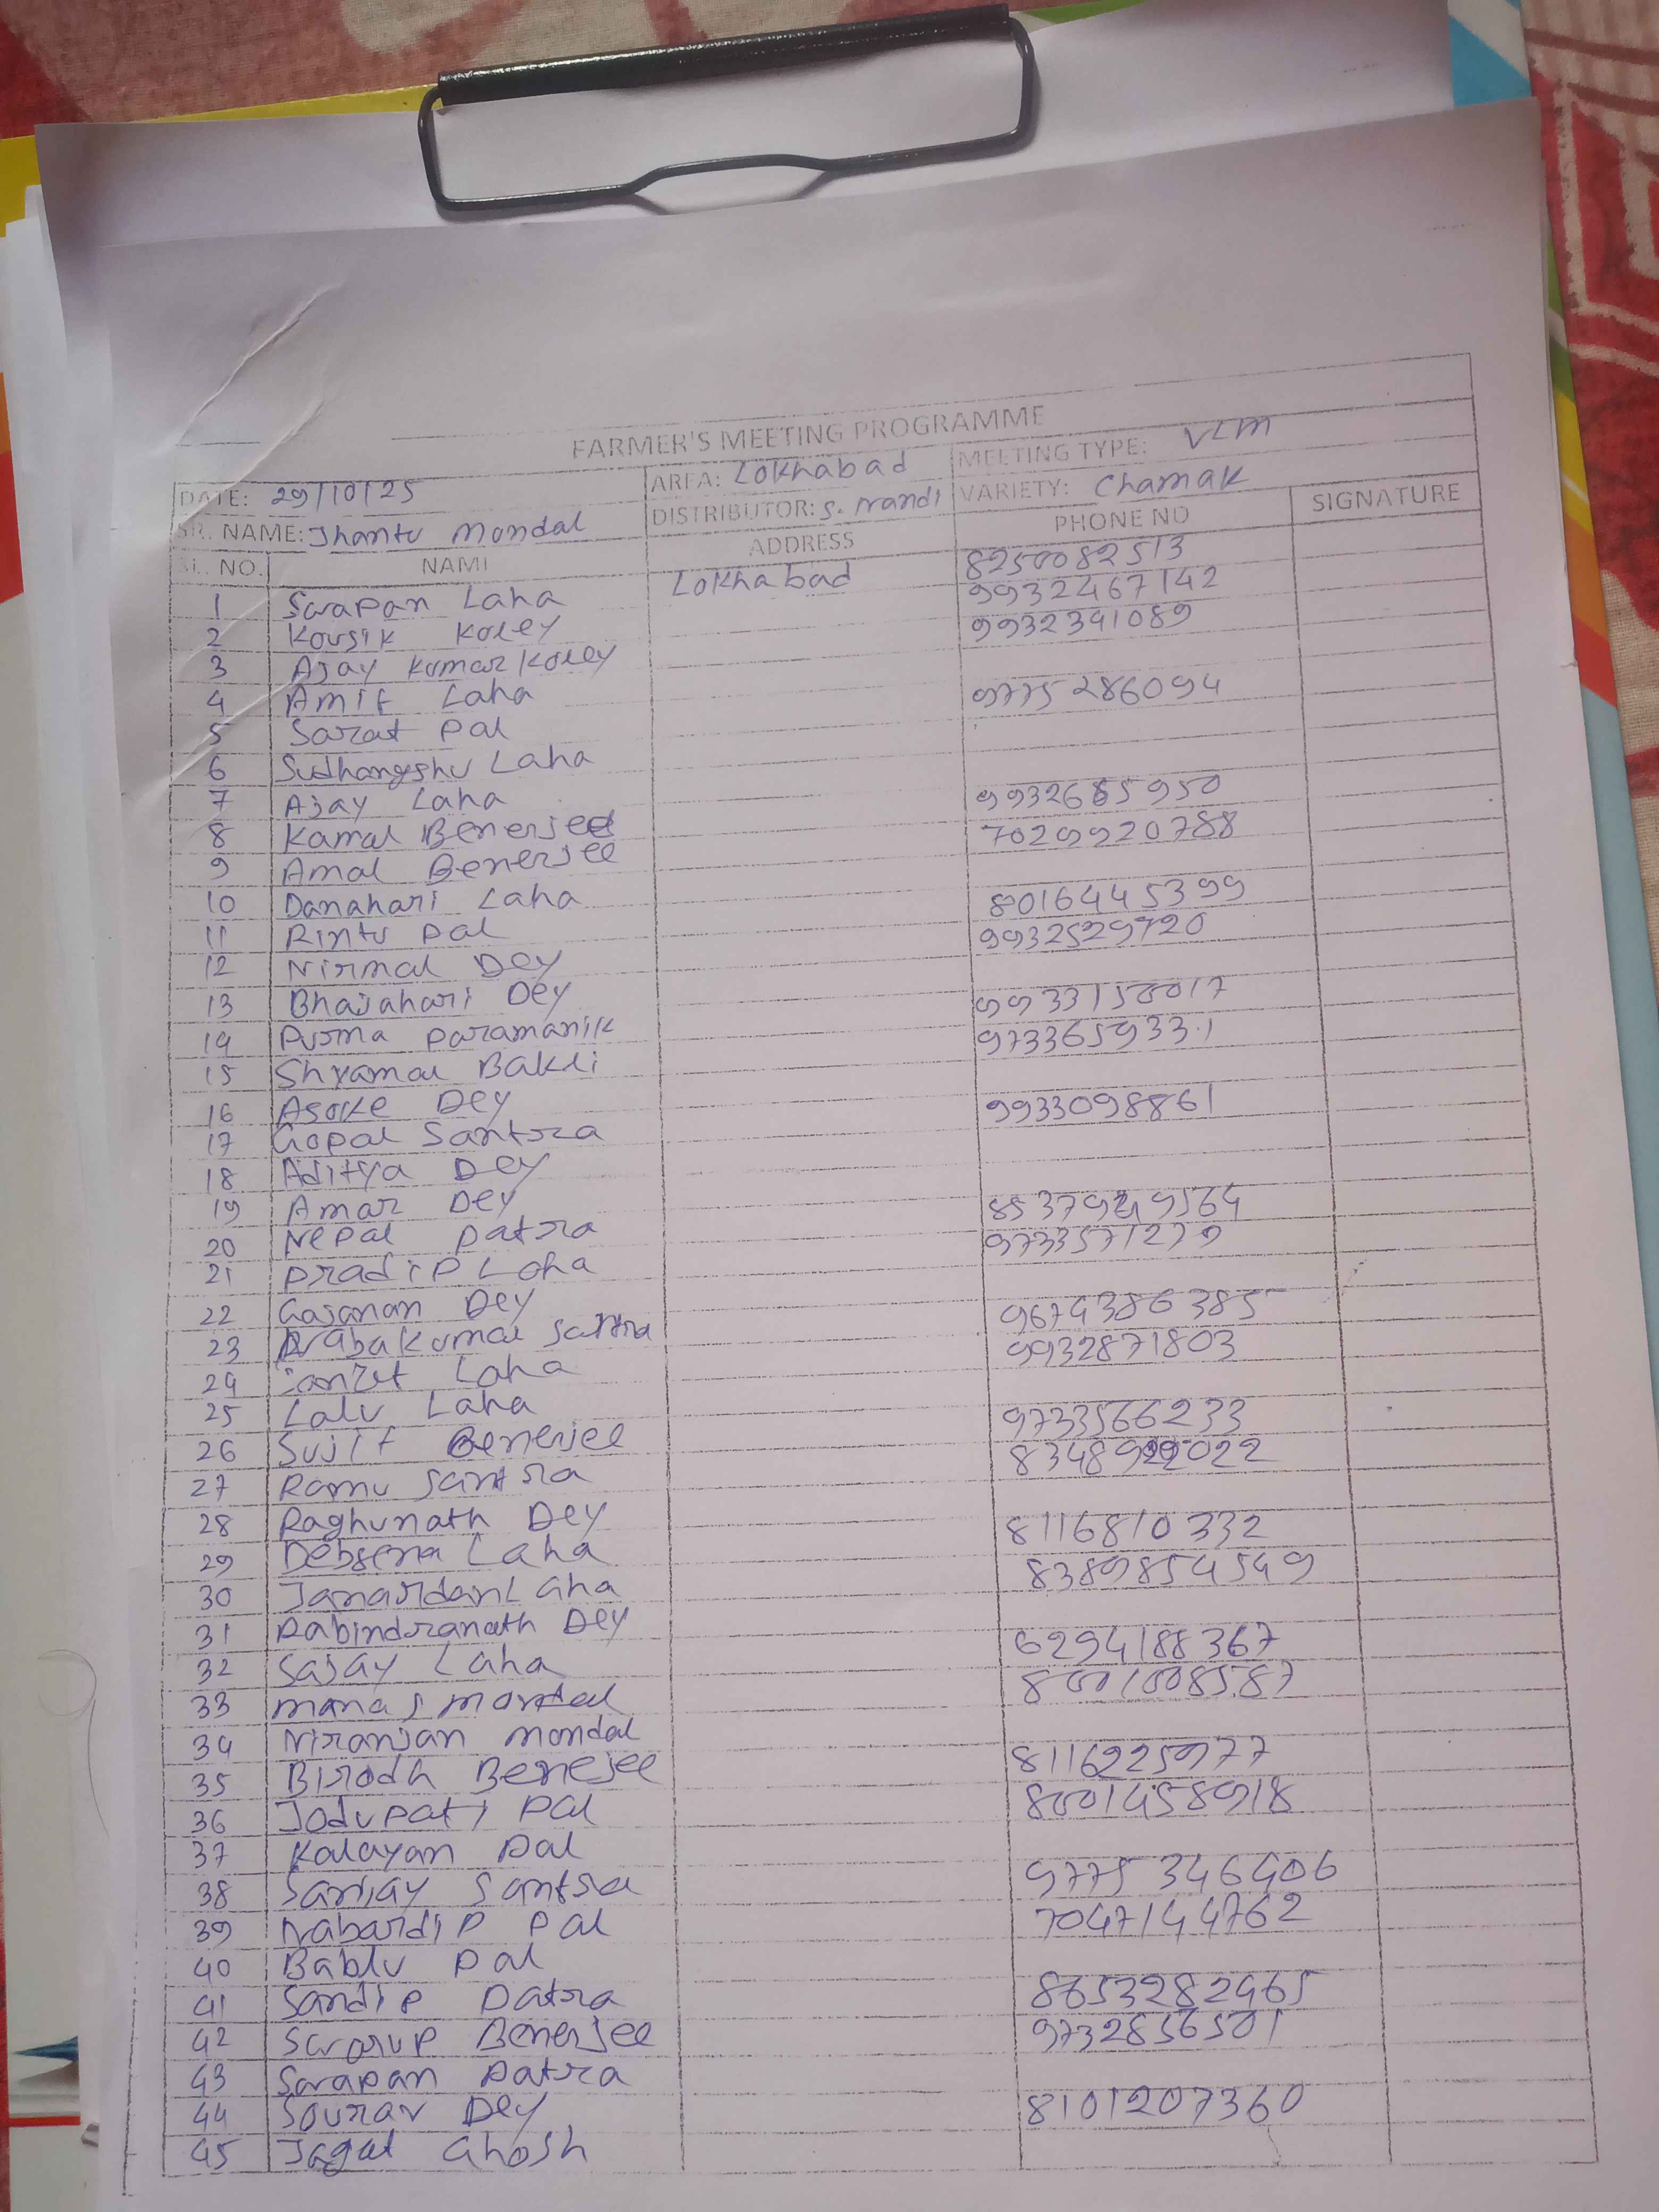 FARMER'S MEETING PROGRAMME
DATE: 29/10/25 AREA: Lokhabad MEETING TYPE: VLM
SR. NAME: Jhantu Mondal DISTRIBUTOR: S. Nandi VARIETY: Chamak
SL. NO. NAME ADDRESS PHONE NO SIGNATURE
1 Swapan Laha Lokhabad 8250082513
2 Kousik Koley 9932467142
3 Ajay Kumar Koley 9932341089
4 Amit Laha
5 Sarat Pal 9775286094
6 Sudhangshu Laha
7 Ajay Laha
8 Kamal Benerjee 9932685950
9 Amal Benerjee 7029920788
10 Danahari Laha
11 Rintu Pal 8016445399
12 Nirmal Dey 9932529720
13 Bhajahari Dey
14 Purna Paramanik 9933158017
15 Shyamal Bakli 9733659331
16 Asoke Dey
17 Gopal Santra 9933098861
18 Aditya Dey
19 Amar Dey
20 Nepal Patra
21 Pradip Loha 9733571279
22 Gajanan Dey
23 Santra 9674386385
24 Laha 9932871803
25 Lalu Laha
26 Sujit Benerjee 9733566233
27 Ramu Santra
28 Raghunath Dey
29 Laha 8116810332
30 Janardan Laha 8389854549
31 Rabindranath Dey
32 Sajay Laha 6294188367
33 Manas Mondal 8001008587
34 Niranjan Mondal
35 Birodh Benejee 8116225977
36 Jodupati Pal 8001458918
37 Kalayan Pal
38 Sanjay Santra 9775346406
39 Nabardip Pal 7047144762
40 Bablu Pal
41 Sandip Patra 8653282465
42 Swarup Benerjee 9732856501
43 Swapan Patra
44 Sourav Dey 8101207360
45 Jagal Ghosh